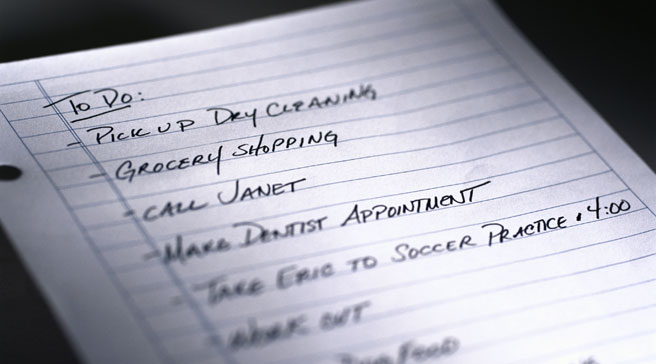 To Do:
- Pick up Dry Cleaning
- Grocery Shopping
- Call Janet
- Make Dentist Appointment
- Take Eric to Soccer Practice • 4:00
- Work out
Food